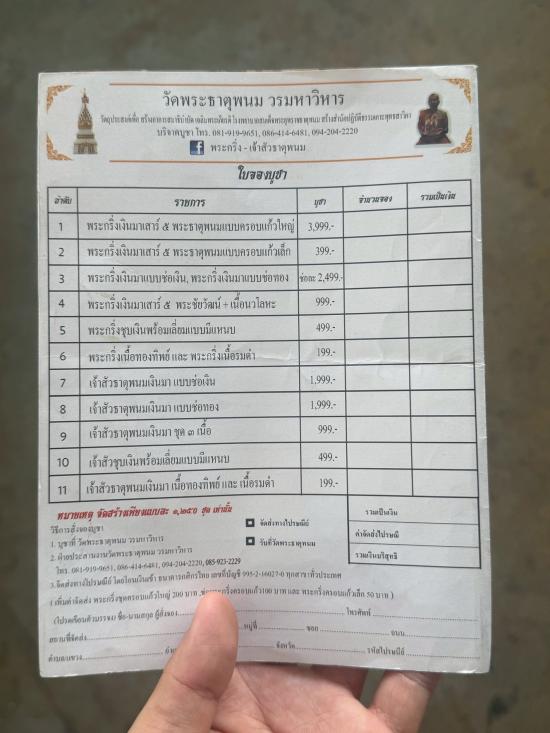 วัดพระธาตุพนม วรมหาวิหาร
วัตถุประสงค์เพื่อ สร้างอาคารสมาธิบำบัด เฉลิมพระเกียรติ โรงพยาบาลสมเด็จพระยุพราชธาตุพนม สร้างสำนักปฏิบัติธรรม
บริจาคบูชา โทร. 081-919-9651, 086-414-6481, 094-204-2220
พระกริ่ง - เจ้าสัวธาตุพนม
ใบจองบูชา
ลำดับ รายการ บูชา จำนวนจอง รวมเป็นเงิน
1 พระกริ่งเงินมาเสาร์ ๕ พระธาตุพนมแบบครอบแก้วใหญ่ 3,999.-
2 พระกริ่งเงินมาเสาร์ ๕ พระธาตุพนมแบบครอบแก้วเล็ก 399.-
3 พระกริ่งเงินมาแบบช่อเงิน, พระกริ่งเงินมาแบบช่อทอง ช่อละ 2,499.-
4 พระกริ่งเงินมาเสาร์ ๕ พระชัยวัฒน์ + เนื้อนวโลหะ 999.-
5 พระกริ่งชุบเงินพร้อมเลี่ยมแบบมีแหนบ 499.-
6 พระกริ่งเนื้อทองทิพย์ และ พระกริ่งเนื้อรมดำ 199.-
7 เจ้าสัวธาตุพนมเงินมา แบบช่อเงิน 1,999.-
8 เจ้าสัวธาตุพนมเงินมา แบบช่อทอง 1,999.-
9 เจ้าสัวธาตุพนมเงินมา ชุด ๓ เนื้อ 999.-
10 เจ้าสัวชุบเงินพร้อมเลี่ยมแบบมีแหนบ 499.-
11 เจ้าสัวธาตุพนมเงินมา เนื้อทองทิพย์ และ เนื้อรมดำ 199.-
หมายเหตุ จัดสร้างเพียงแบบละ ๑,๒๕๐ ชุด เท่านั้น
รวมเป็นเงิน
วิธีการสั่งจองบูชา
จัดส่งทางไปรษณีย์
1. บูชาที่ วัดพระธาตุพนม วรมหาวิหาร
ค่าจัดส่งไปรษณี
2. ฝ่ายประสานงานวัดพระธาตุพนม วรมหาวิหาร
รับที่วัดพระธาตุพนม
โทร. 081-919-9651, 086-414-6481, 094-204-2220, 085-923-2229
รวมเงินบริสุทธิ์
3. จัดส่งทางไปรษณีย์ โดยโอนเงินเข้า ธนาคารกสิกรไทย เลขที่บัญชี 995-2-16027-0 ทุกสาขาทั่วประเทศ
( เพิ่มค่าจัดส่ง พระกริ่งชุดครอบแก้วใหญ่ 200 บาท พระกริ่งครอบแก้ว100 บาท และ พระกริ่งครอบแก้วเล็ก 50 บาท )
(โปรดเขียนตัวบรรจง) ชื่อ-นามสกุล ผู้สั่งจอง โทรศัพท์
สถานที่จัดส่ง หมู่ที่ ซอย ถนน
ตำบล/แขวง จังหวัด รหัสไปรษณีย์